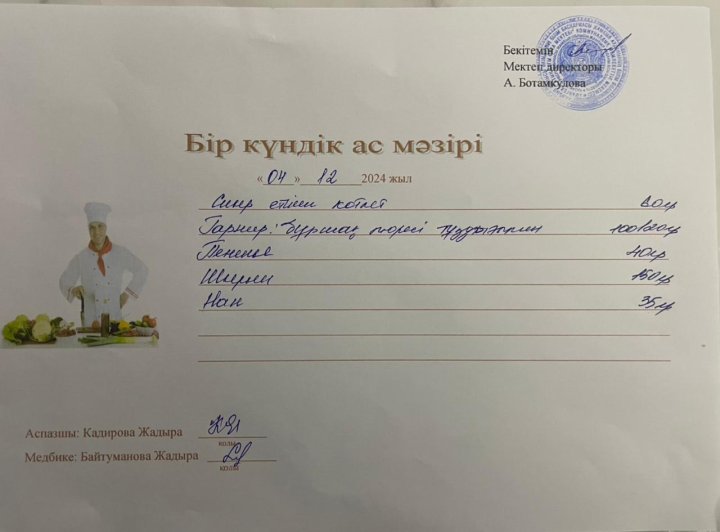 Бекітемін
Мектеп директоры
А. Ботамкулова
Бір күндік ас мәзірі
«04» 12 2024 жыл
Сиыр етінен котлет 80гр
Гарнир: бұршақ пюресі 100/20гр
Печенье 40гр
Шырын 150гр
Нан 35гр
Аспазшы: Кадирова Жадыра
қолы
Медбике: Байтуманова Жадыра
қолы